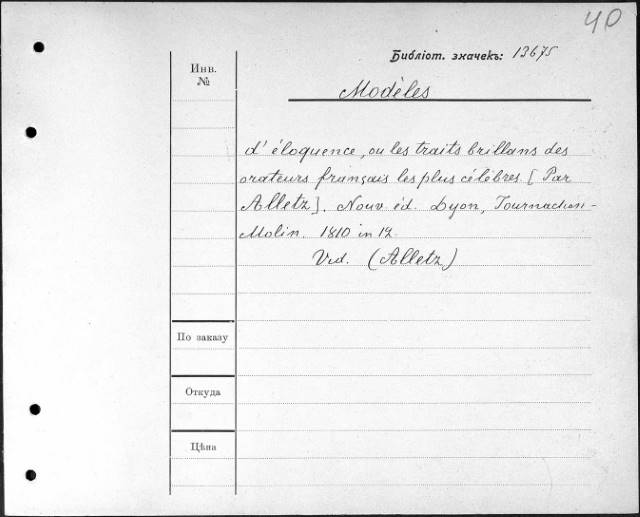 40
Библіот. значекъ: 13675
Инв.
№
Modèles
d'éloquence, ou les traits brillans des
orateurs français les plus célèbres. [Par
Alletz]. Nouv. éd. Lyon, Tournachon-
Molin. 1810 in 12.
Vid. (Alletz)
По заказу
Откуда
Цѣна